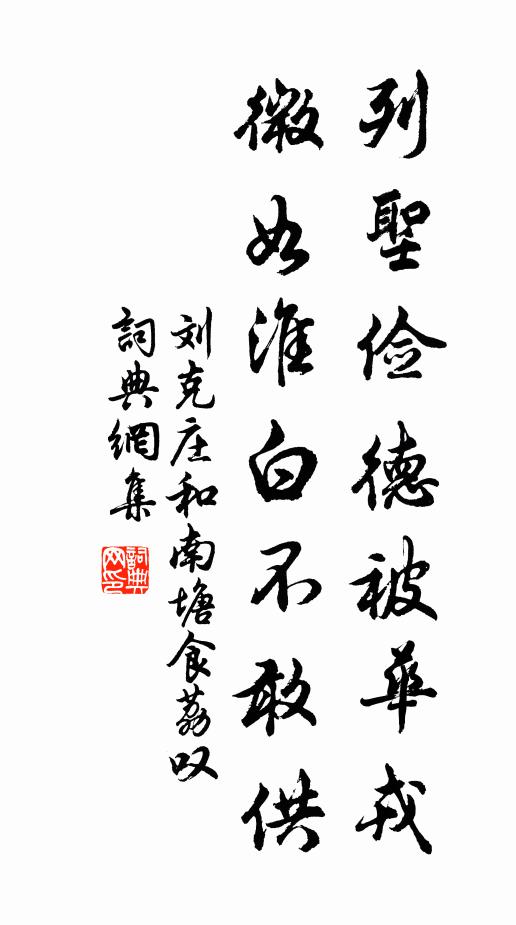 列聖儉德被華戎
微如淮白不敢供
刘克庄和南塘食荔叹
詞典網集
詞典网印